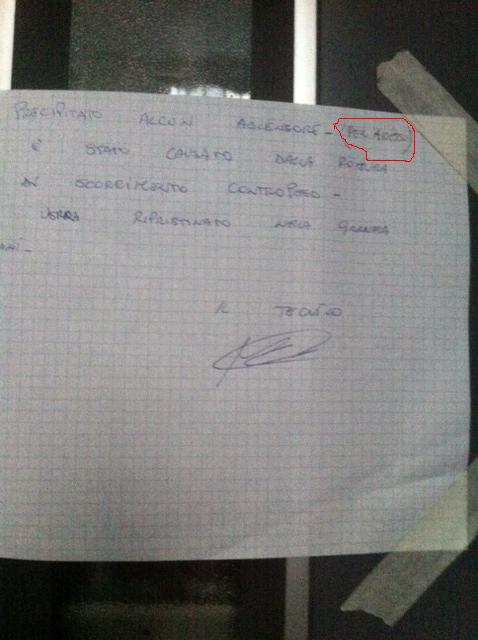 PRECIPITATO ALCUN ASCENSORE - (PER ADESSO)
È STATO CAUSATO DALLA ROTTURA
DI SCORRIMENTO CONTROPESO -
VERRÀ RIPRISTINATO NELLA GIORNATA
ANI -
IL TECNICO